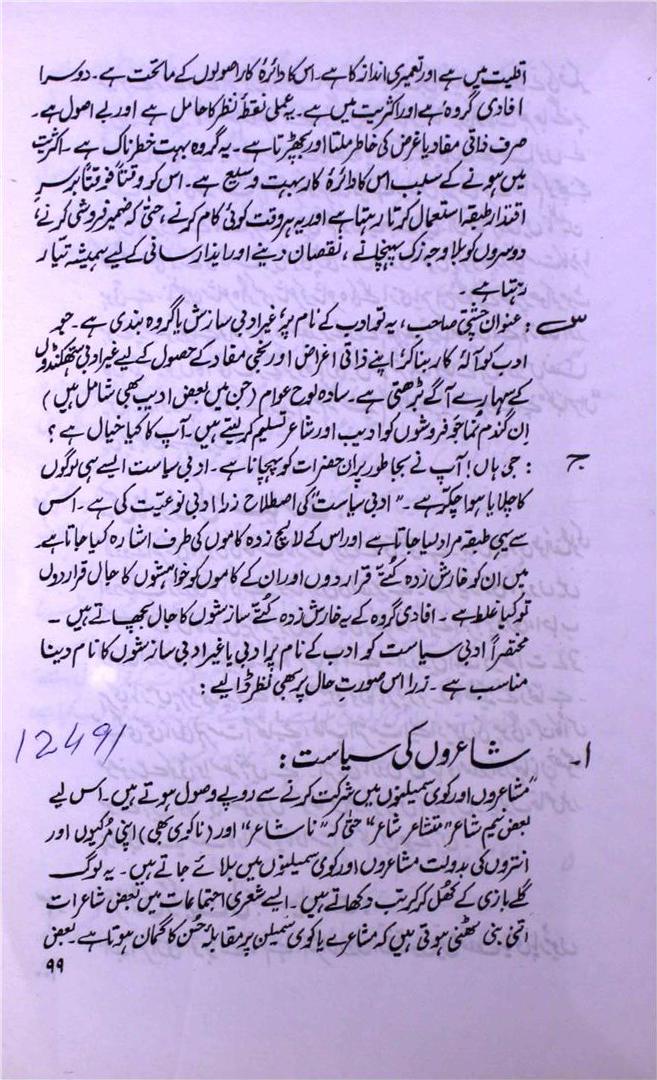 اقلیت میں ہے اور تعمیری انداز کا ہے۔ اس کا دائرۂ کار اصولوں کے ماتحت ہے۔ دوسرا
افادی گروہ ہے اور اکثریت میں ہے۔ یہ عملی نقطۂ نظر کا حامل ہے اور بے اصول ہے۔
صرف ذاتی مفاد یا غرض کی خاطر ملتا اور بچھڑتا ہے۔ یہ گروہ بہت خطرناک ہے۔ اکثریت
میں ہونے کے سبب اس کا دائرۂ کار بہت وسیع ہے۔ اس کو وقتاً فوقتاً برسرِ
اقتدار طبقہ استعمال کرتا رہتا ہے اور یہ ہر وقت کوئی کام کرنے، حتٰی کہ ضمیر فروشی کرنے،
دوسروں کو بلا وجہ زک پہنچانے، نقصان دینے اور ایذا رسانی کے لیے ہمیشہ تیار
رہتا ہے۔
س : عنوان چشتی صاحب، یہ تو ادب کے نام پر غیر ادبی سازش یا گروہ بندی ہے۔ جو
ادب کو آلۂ کار بنا کر اپنے ذاتی اغراض اور نجی مفاد کے حصول کے لیے غیر ادبی ہتھکنڈوں
کے سہارے آگے بڑھتی ہے۔ سادہ لوح عوام (جن میں بعض ادیب بھی شامل ہیں)
اِن گندم نما جَو فروشوں کو ادیب اور شاعر تسلیم کر لیتے ہیں۔ آپ کا کیا خیال ہے؟
ج : جی ہاں! آپ نے بجا طور پر ان حضرات کو پہچانا ہے۔ ادبی سیاست ایسے ہی لوگوں
کا چلایا ہوا چکر ہے۔ "ادبی سیاست" کی اصطلاح ذرا ادبی نوعیّت کی ہے۔ اس
سے یہی طبقہ مراد لیا جاتا ہے اور اس کے لالچ زدہ کاموں کی طرف اشارہ کیا جاتا ہے
میں ان کو خارش زدہ کُتّے قرار دوں اور ان کے کاموں کو خواہشوں کا جال قرار دوں
تو کیا غلط ہے۔ افادی گروہ کے یہ خارش زدہ کُتّے سازشوں کا جال بچھاتے ہیں۔
مختصراً ادبی سیاست کو ادب کے نام پر ادبی یا غیر ادبی سازشوں کا نام دینا
مناسب ہے۔ ذرا اس صورتِ حال پر بھی نظر ڈالیے :
12491
۱۔ شاعروں کی سیاست :
"مشاعروں اور کوی سمیلنوں میں شرکت کرنے سے روپے وصول ہوتے ہیں۔ اس لیے
بعض نیم شاعر "متشاعر شاعر" حتٰی کہ "ناشاعر" اور (ناکوی بھی) اپنی مُرکیوں اور
انتروں کی بدولت مشاعروں اور کوی سمیلنوں میں بلائے جاتے ہیں۔ یہ لوگ
گلے بازی کے کھُل کر کرتب دکھاتے ہیں۔ ایسے شعری اجتماعات میں بعض شاعرات
اتنی بنی ٹھنی ہوتی ہیں کہ مشاعرے یا کوی سمیلن پر مقابلۂ حُسن کا گمان ہوتا ہے۔ بعض
۹۹